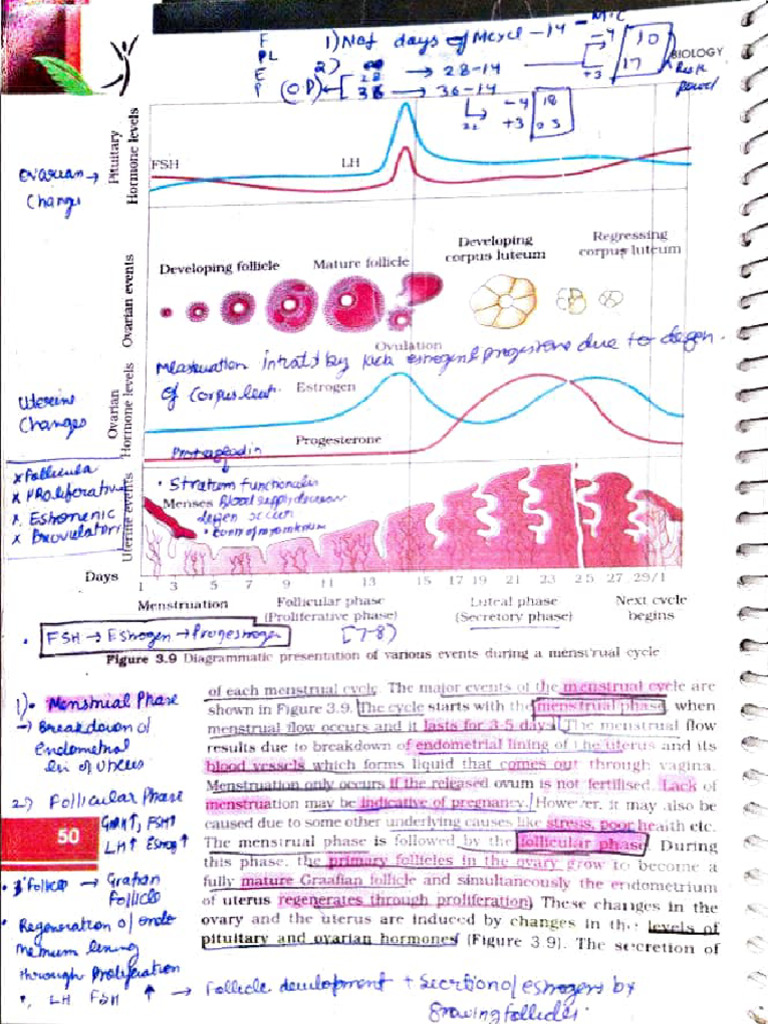 F
PL
E
P
1) No of days of Mcycl - 14
2)
28 → 28-14
36 → 36-14
-4
+3
10
17
-4
+3
BIOLOGY
Pituitary
Hormone levels
FSH
LH
Ovarian →
Changes
Ovarian events
Developing follicle
Mature follicle
Developing
corpus luteum
Regressing
corpus luteum
Ovulation
Menstruation by lack estrogen progestrone due to degen.
of Corpus
Uterine
Changes
Ovarian
Hormone levels
Estrogen
Progesterone
x Follicula
x PRoliferative
x Estrogenic
x Preovulatory
Uterine events
• Stratum functionalis
Menses Blood supply decrease
Days
1 3 5 7 9 11 13 15 17 19 21 23 25 27 29/1
Menstruation
Follicular phase
(Proliferative phase)
Luteal phase
(Secretory phase)
Next cycle
begins
• FSH → Estrogen → Progestrogen
[7-8)
Figure 3.9 Diagrammatic presentation of various events during a menstrual cycle
1) - Menstrual Phase
→ Breakdown of
Endometrial
of Uterus
2) Follicular Phase
GnRH↑, FSH↑
LH↑ Estrog↑
50
• 1° Follicle → Grafian
Follicle
• Regeneration of endo
metrium lining
through Proliferation
• LH FSH ↑ → Follicle development + Secrtion of estrogens by
Growing follicles.
of each menstrual cycle. The major events of the menstrual cycle are
shown in Figure 3.9. The cycle starts with the menstrual phase, when
menstrual flow occurs and it lasts for 3-5 days. The menstrual flow
results due to breakdown of endometrial lining of the uterus and its
blood vessels which forms liquid that comes out through vagina.
Menstruation only occurs if the released ovum is not fertilised. Lack of
menstruation may be indicative of pregnancy. However, it may also be
caused due to some other underlying causes like stress, poor health etc.
The menstrual phase is followed by the follicular phase. During
this phase, the primary follicles in the ovary grow to become a
fully mature Graafian follicle and simultaneously the endometrium
of uterus regenerates through proliferation. These changes in the
ovary and the uterus are induced by changes in the levels of
pituitary and ovarian hormones (Figure 3.9). The secretion of